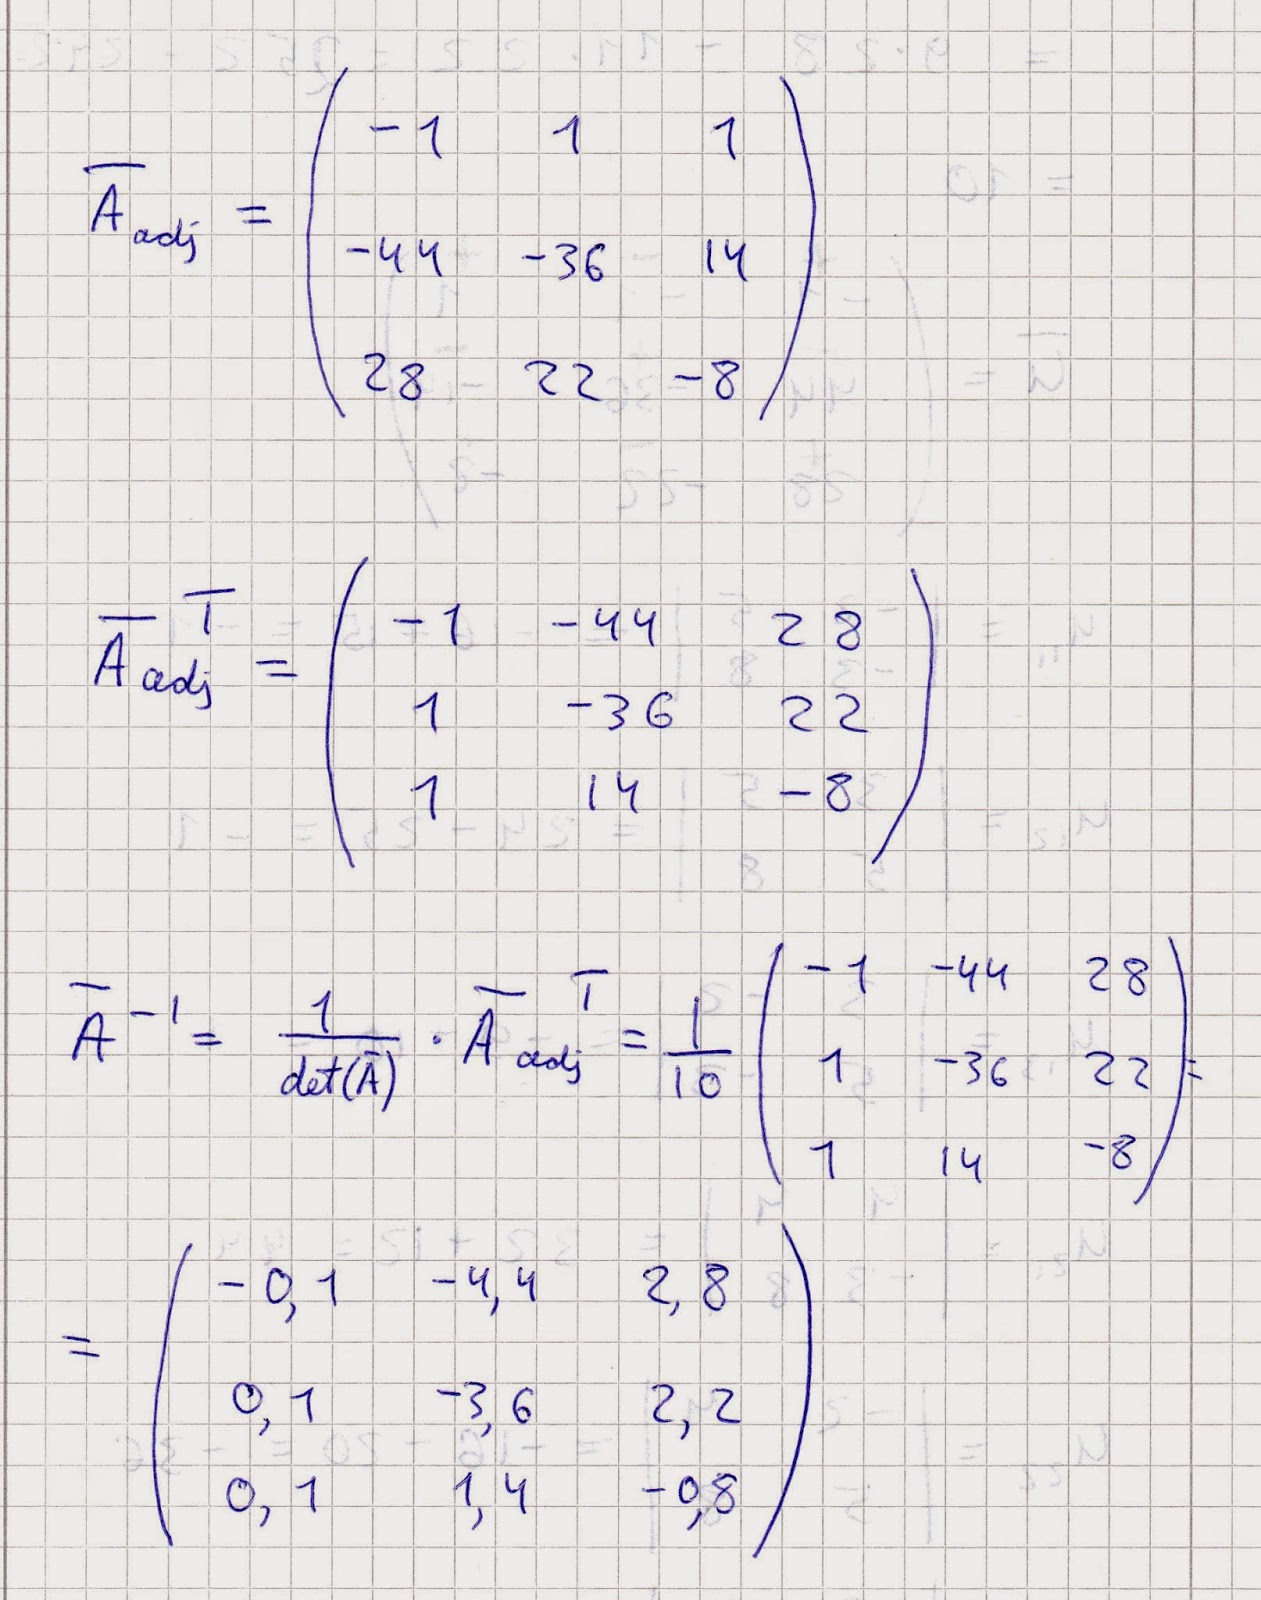 A̅adj = ( -1 1 1
-44 -36 14
28 22 -8 )
A̅adj^T = ( -1 -44 28
1 -36 22
1 14 -8 )
A̅^-1 = 1/det(A̅) · A̅adj^T = 1/10 ( -1 -44 28
1 -36 22
1 14 -8 ) =
= ( -0,1 -4,4 2,8
0,1 -3,6 2,2
0,1 1,4 -0,8 )